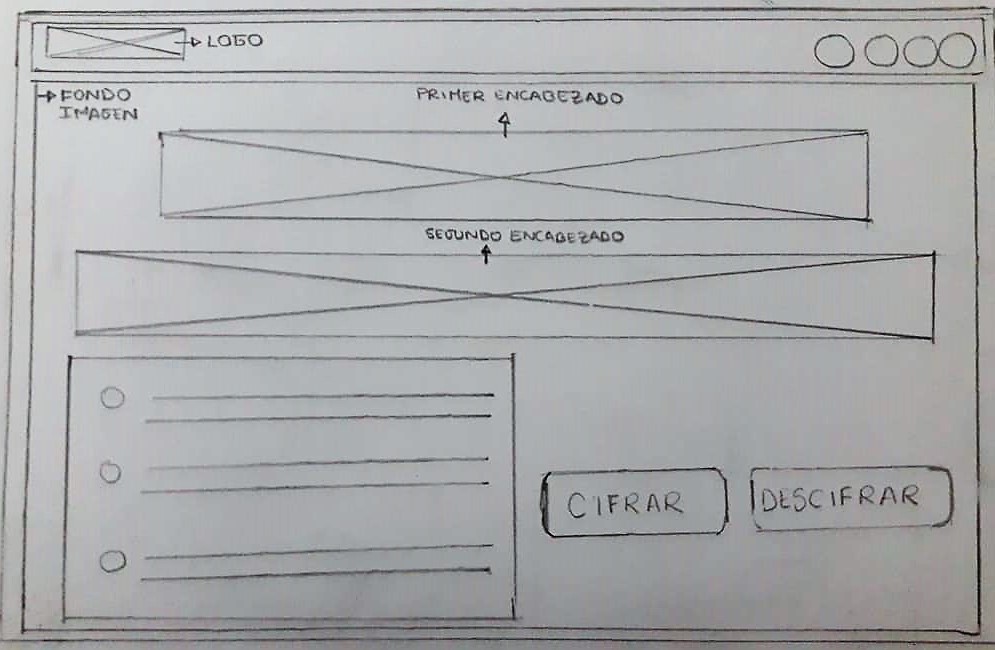 LOGO
FONDO
IMAGEN
PRIMER ENCABEZADO
SEGUNDO ENCABEZADO
CIFRAR
DESCIFRAR